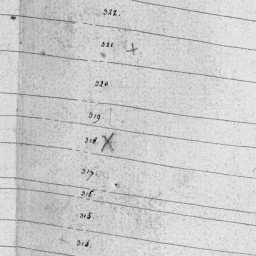 322.
321
320
319
318
317
316
315
314